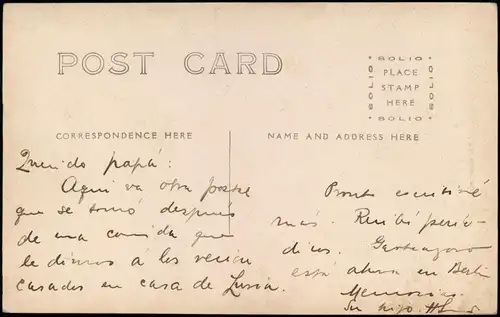 POST CARD
SOLIO
SOLIO PLACE SOLIO
STAMP
HERE
SOLIO
CORRESPONDENCE HERE
NAME AND ADDRESS HERE
Querido papá:
Aquí va otra postal
que se tomó después
de una comida que
le dimos a los recién
casados en casa de
Pronto escribiré
más. Recibí perió-
dicos.
está ahora en Berlín
Memorias
Su hijo